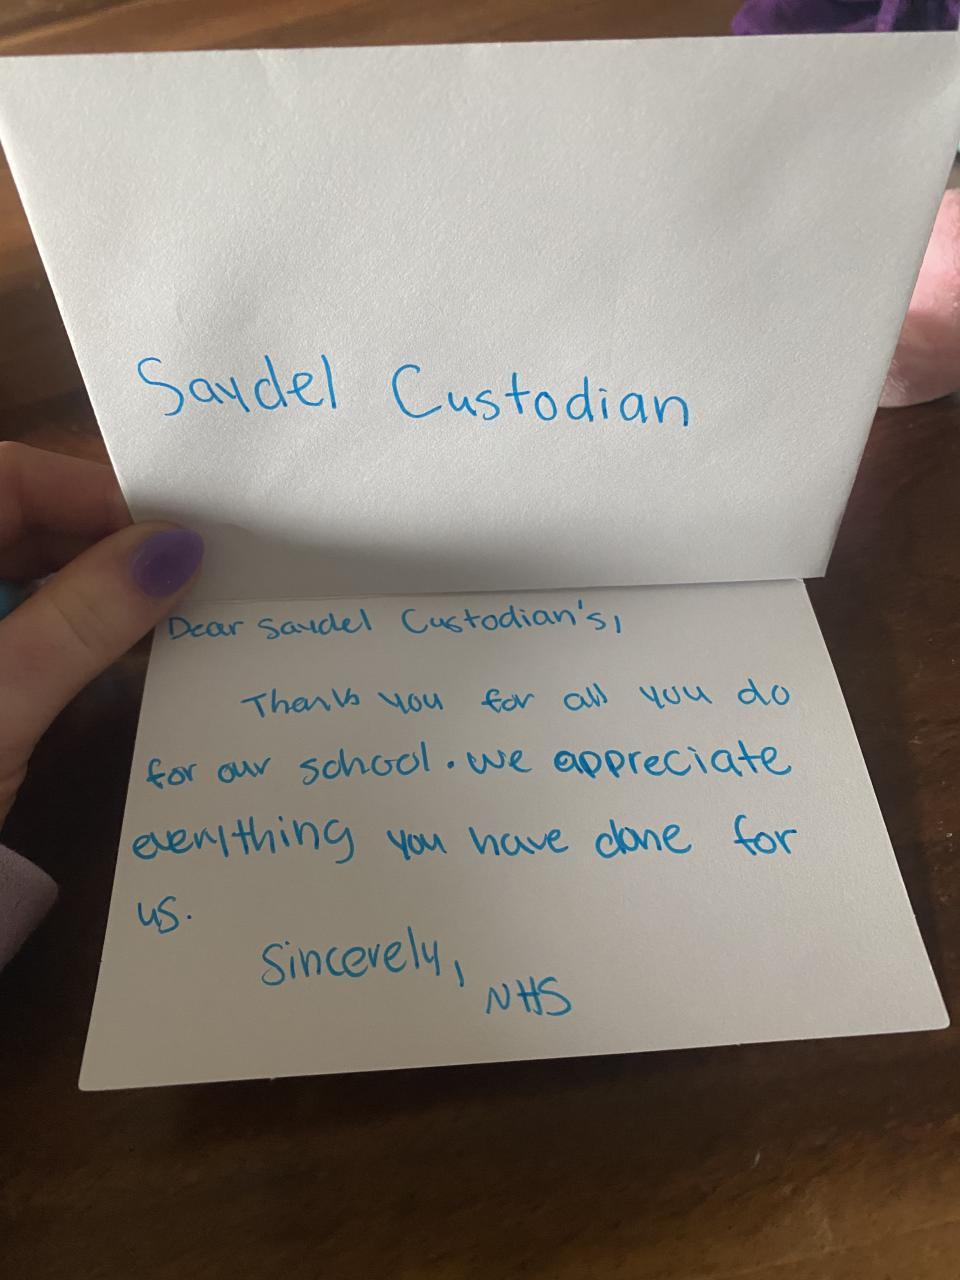 Saydel Custodian
Dear Saydel Custodian's,
Thank you for all you do
for our school. We appreciate
everything you have done for
us.
Sincerely,
NHS